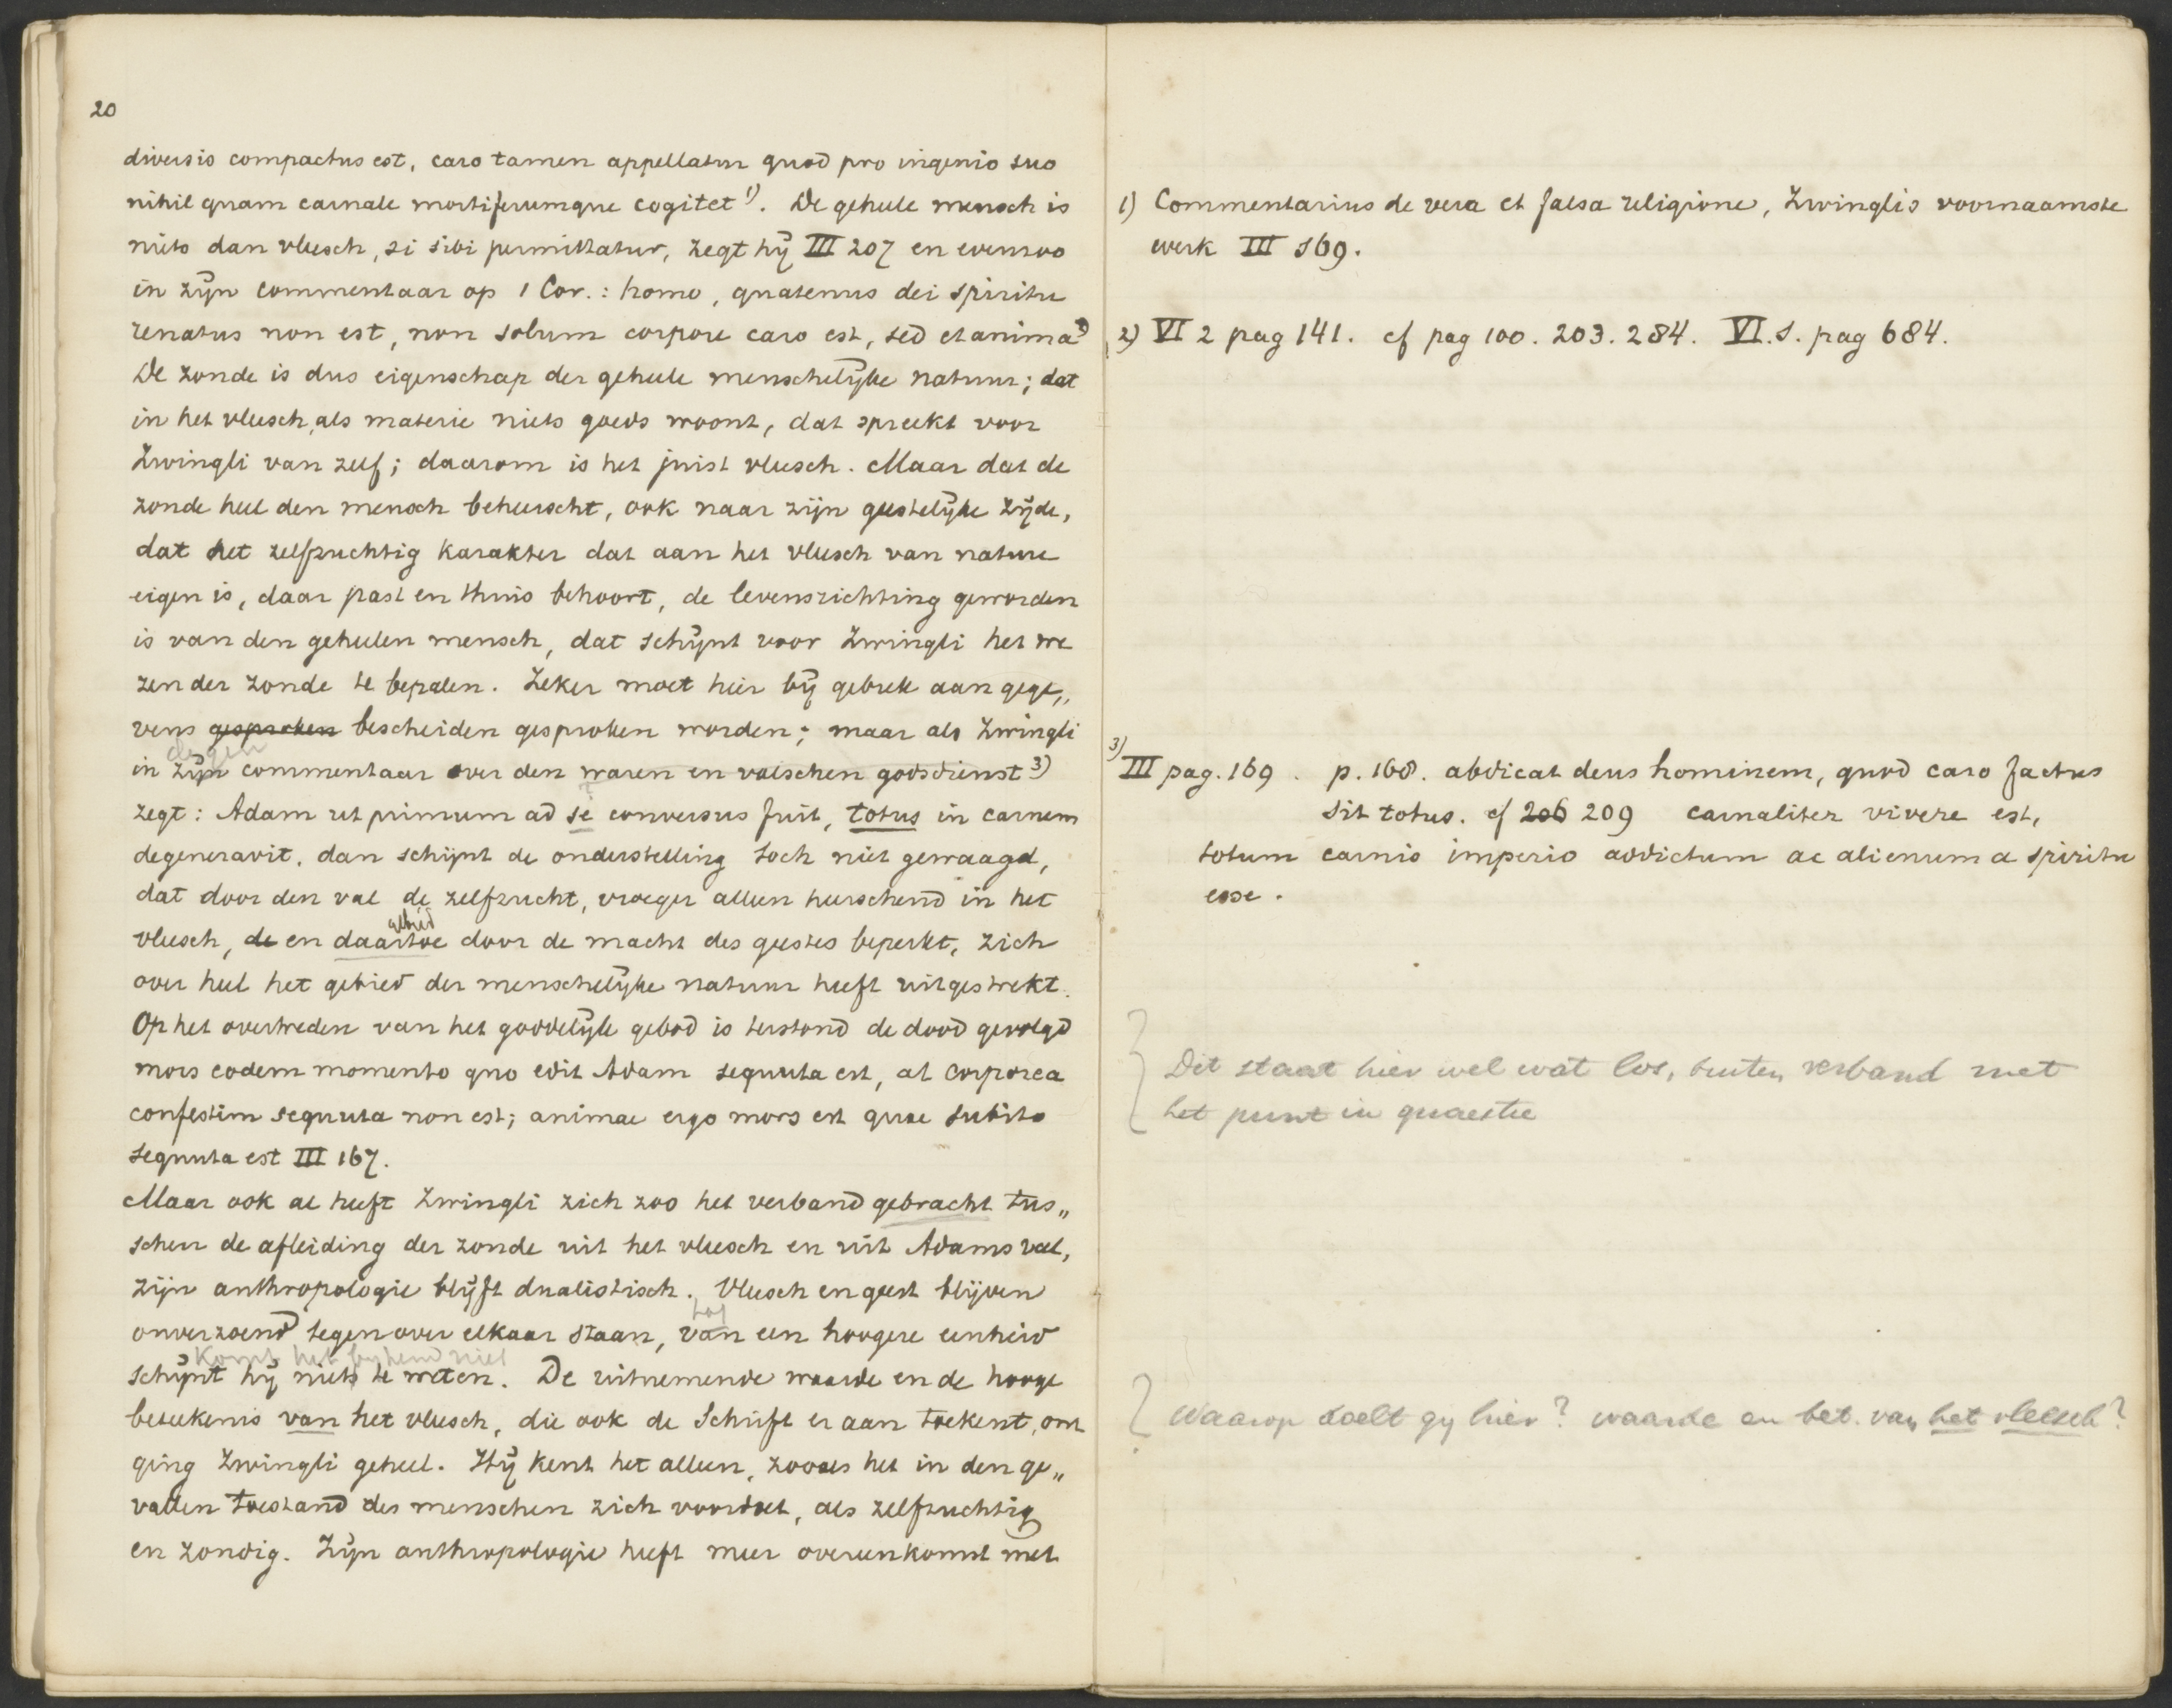 20
diversis compactus est, caro tamen appellatur quod pro ingenio suo
nihil quam carnale mortiferumque cogitet 1). De geheele mensch is
niets dan vleesch, si sibi permittatur, zegt hij III 207 en evenzoo
in zijn commentaar op 1 Cor.: homo, quatenus dei spiritu
renatus non est, non solum corpore caro est, sed et anima 2)
De zonde is dus eigenschap der geheele menschelijke natuur; dat
in het vleesch, als materie niets goeds woont, dat spreekt voor
Zwingli van zelf; daarom is het juist vleesch. Maar dat de
zonde heel den mensch beheerscht, ook naar zijn geestelijke zijde,
dat het zelfzuchtig karakter dat aan het vleesch van nature
eigen is, daar past en thuis behoort, de levensrichting geworden
is van den geheelen mensch, dat schijnt voor Zwingli het we
zen der zonde te bepalen. Zeker moet hier bij gebrek aan gege„
vens gesproken bescheiden gesproken worden; maar als Zwingli
in zijn commentaar over den waren en valschen godsdienst 3)
zegt: Adam ut primum ad se conversus fuit, totus in carnem
degeneravit, dan schijnt de onderstelling toch niet gewaagd,
dat door den val de zelfzucht, vroeger alleen heerschend in het
altijd
vleesch, de en daartoe door de macht des geestes beperkt, zich
over heel het gebied der menschelijke natuur heeft uitgestrekt.
Op het overtreden van het goddelijk gebod is terstond de dood gevolgd
mors eodem momento quo edit Adam sequuta est, at corporea
confestim sequuta non est; animae ergo mors est quae subito
sequuta est III 167.
Maar ook al heeft Zwingli zich zoo het verband gebracht tus„
schen de afleiding der zonde uit het vleesch en uit Adams val,
zijn anthropologie blijft dualistisch. Vleesch en geest blijven
tot
onverzoend tegenover elkaar staan, van een hoogere eenheid
komt het bij hem niet
schijnt hij niets te weten. De uitnemende waarde en de hooge
beteekenis van het vleesch, die ook de Schrift er aan toekent, om
ging Zwingli geheel. Hij kent het alleen, zooals het in den ge„
vallen toestand des menschen zich voordoet, als zelfzuchtig
en zondig. Zijn anthropologie heeft meer overeenkomst met
1) Commentarius de vera et falsa religione, Zwinglis voornaamste
werk III 169.
2) VI 2 pag 141. cf pag 100. 203. 284. VI.1. pag 684.
3) III pag. 169. p. 168. abdicat deus hominem, quod caro factus
sit totus. cf 206 209 carnaliter vivere est,
totum carnis imperio addictum ac alienum a spiritu
esse.
Dit staat hier wel wat los, buiten verband met
het punt in quaestie
Waarop doelt gij hier? waarde en bet. van het vleesch?